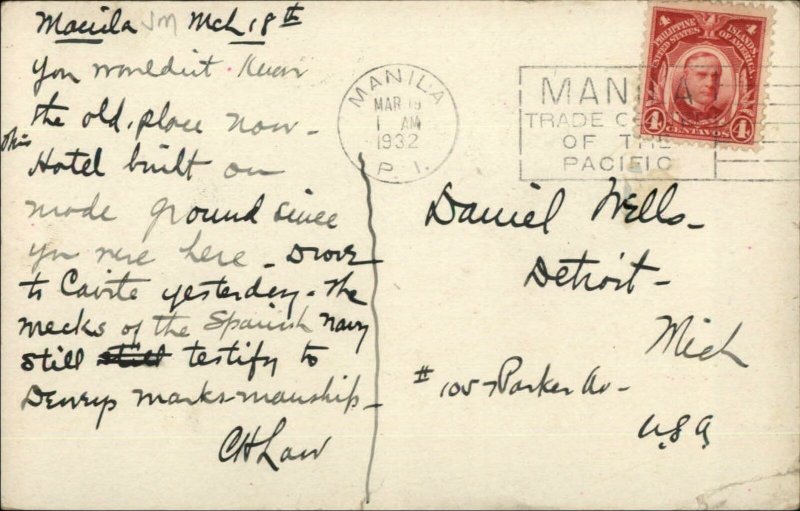 Manila Mch 18th
You wouldn't know
the old place now -
this
Hotel built on
made ground since
you were here - Drove
to Cavite yesterday - The
wrecks of the Spanish navy
still still testify to
Deweys marksmanship -
CH Law
MANILA
MAR 19
1 AM
1932
P. I.
MANILA
TRADE CENTER
OF THE
PACIFIC
PHILIPPINE ISLANDS
UNITED STATES OF AMERICA
4 CENTAVOS 4
Daniel Wells -
Detroit -
Mich
# 105 - Parker Av -
U.S.A.